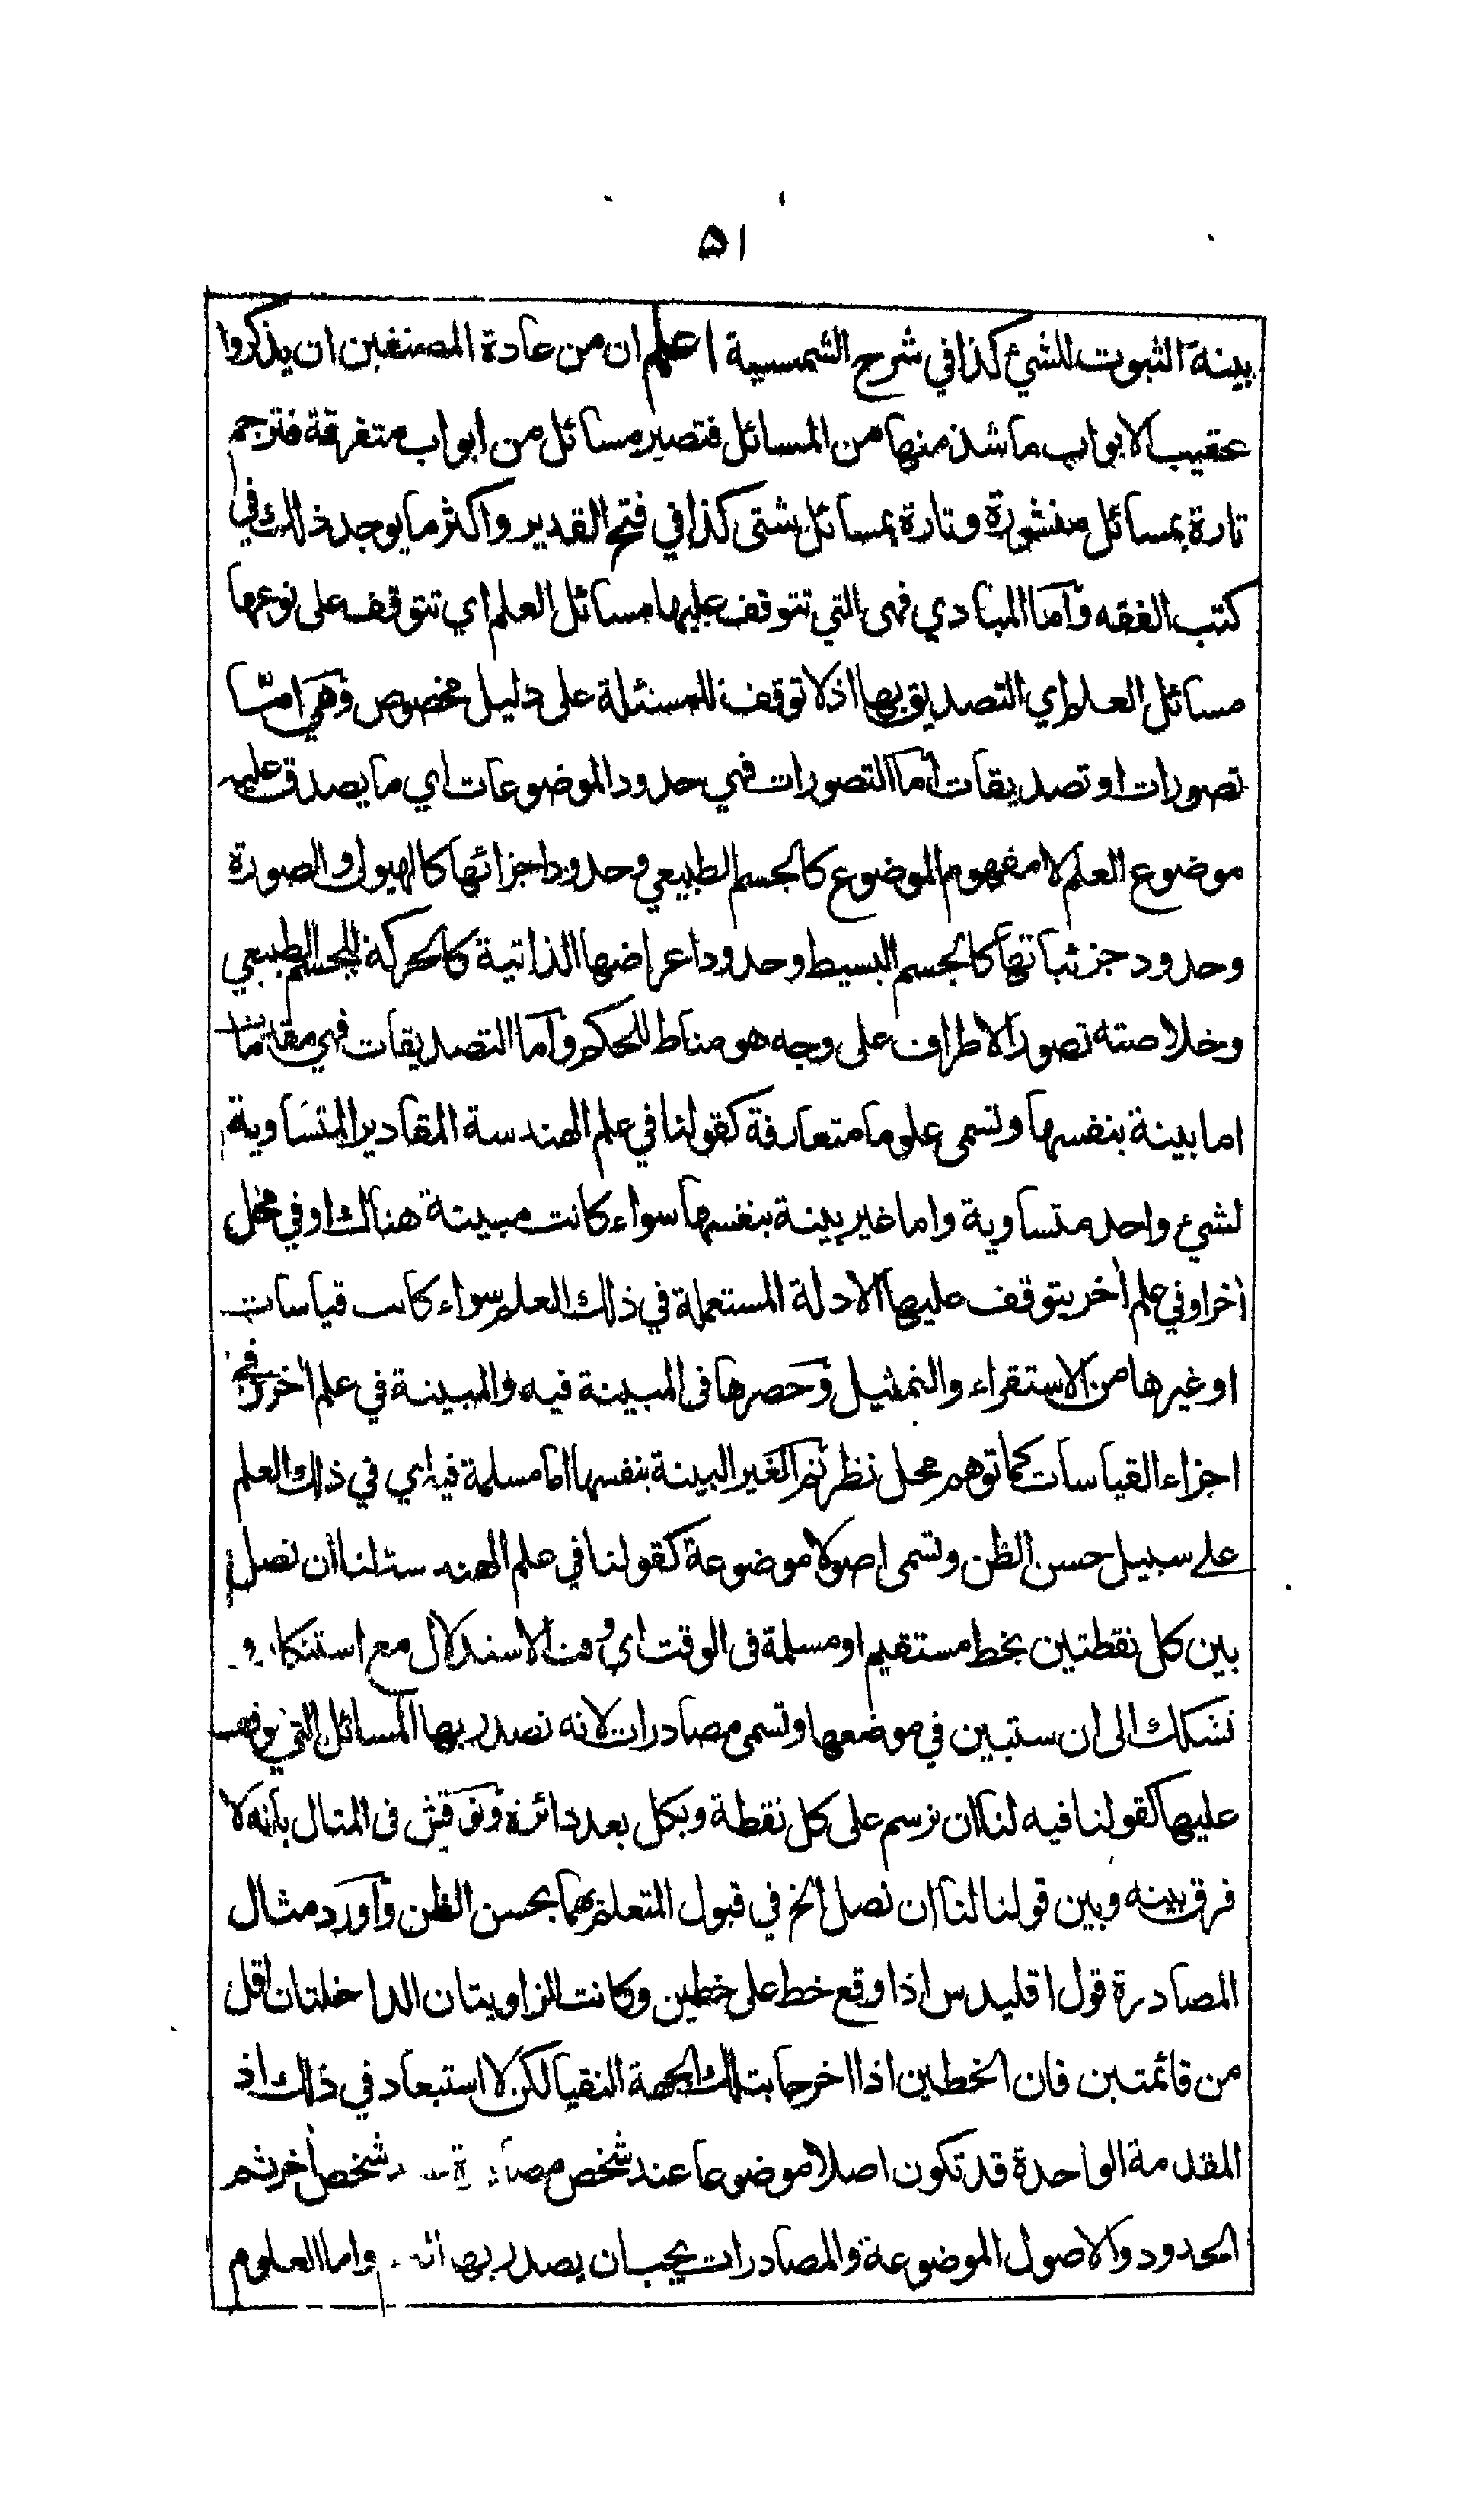 ٥١
بينة الثبوت للشيء كذا في شرح الشمسية اعلم ان من عادة المصنفين ان يذكروا
عقيب الابواب ما شذ منها من المسائل فتصير مسائل من ابواب متفرقة فترجم
تارة بمسائل منثورة وتارة بمسائل شتى كذا في فتح القدير واكثر ما يوجد ذلك في
كتب الفقه وآما المبادي فهى التي تتوقف عليها مسائل العلم اي تتوقف على نوعها
مسائل العلم اي التصديق بها اذ لا توقف للمسئلة على دليل مخصوص وهي امّا
تصورات او تصديقات آما التصورات فهي حدود الموضوعات اي ما يصدق عليه
موضوع العلم لا مفهوم الموضوع كالجسم الطبيعي وحدود اجزائها كالهيولى والصورة
وحدود جزئياتها كالجسم البسيط وحدود اعراضها الذاتية كالحركة للجسم الطبيعي
وخلاصته تصور الاطراف على وجه هو مناط للحكم وآما التصديقات فهي مقدمات
اما بينة بنفسها وتسمى علوما متعارفة كقولنا في علم الهندسة المقادير المتساوية
لشيء واحد متساوية واما غير بينة بنفسها سواء كانت مبينة هناك او في محل
أخر او في علم أخر يتوقف عليها الادلة المستعملة في ذلك العلم سواء كانت قياسات
او غيرها من الاستقراء والتمثيل وحصرها فى المبينة فيه والمبينة في علم أخر وفي
اجزاء القياسات كما توهم محل نظر ثم الغير البينة بنفسها اما مسلمة فيه اي في ذلك العلم
على سبيل حسن الظن وتسمى اصولا موضوعة كقولنا في علم الهندسة لنا ان نصل
بين كل نقطتين بخط مستقيم او مسلمة فى الوقت اي وقت الاستدلال مع استنكار و
تشكك الى ان ستبين في موضعها وتسمى مصادرات لانه تصدر بها المسائل التي توقف
عليها كقولنا فيه لنا ان نرسم على كل نقطة وبكل بعد دائرة ونوقش فى المثال بانه لا
فرق بينه وبين قولنا لنا ان نصل الخ في قبول المتعلم بهما بحسن الظن وآورد مثال
المصادرة قول اقليدس اذا وقع خط على خطين وكانت الزاويتان الداخلتان اقل
من قائمتين فان الخطين اذا اخرجا بتلك الجهة التقيا لكن لا استبعاد في ذلك اذ
المقدمة الواحدة قد تكون اصلا موضوعا عند شخص شخص أخر ثم
الحدود والاصول الموضوعة والمصادرات يجب ان يصدر بها واما العلوم